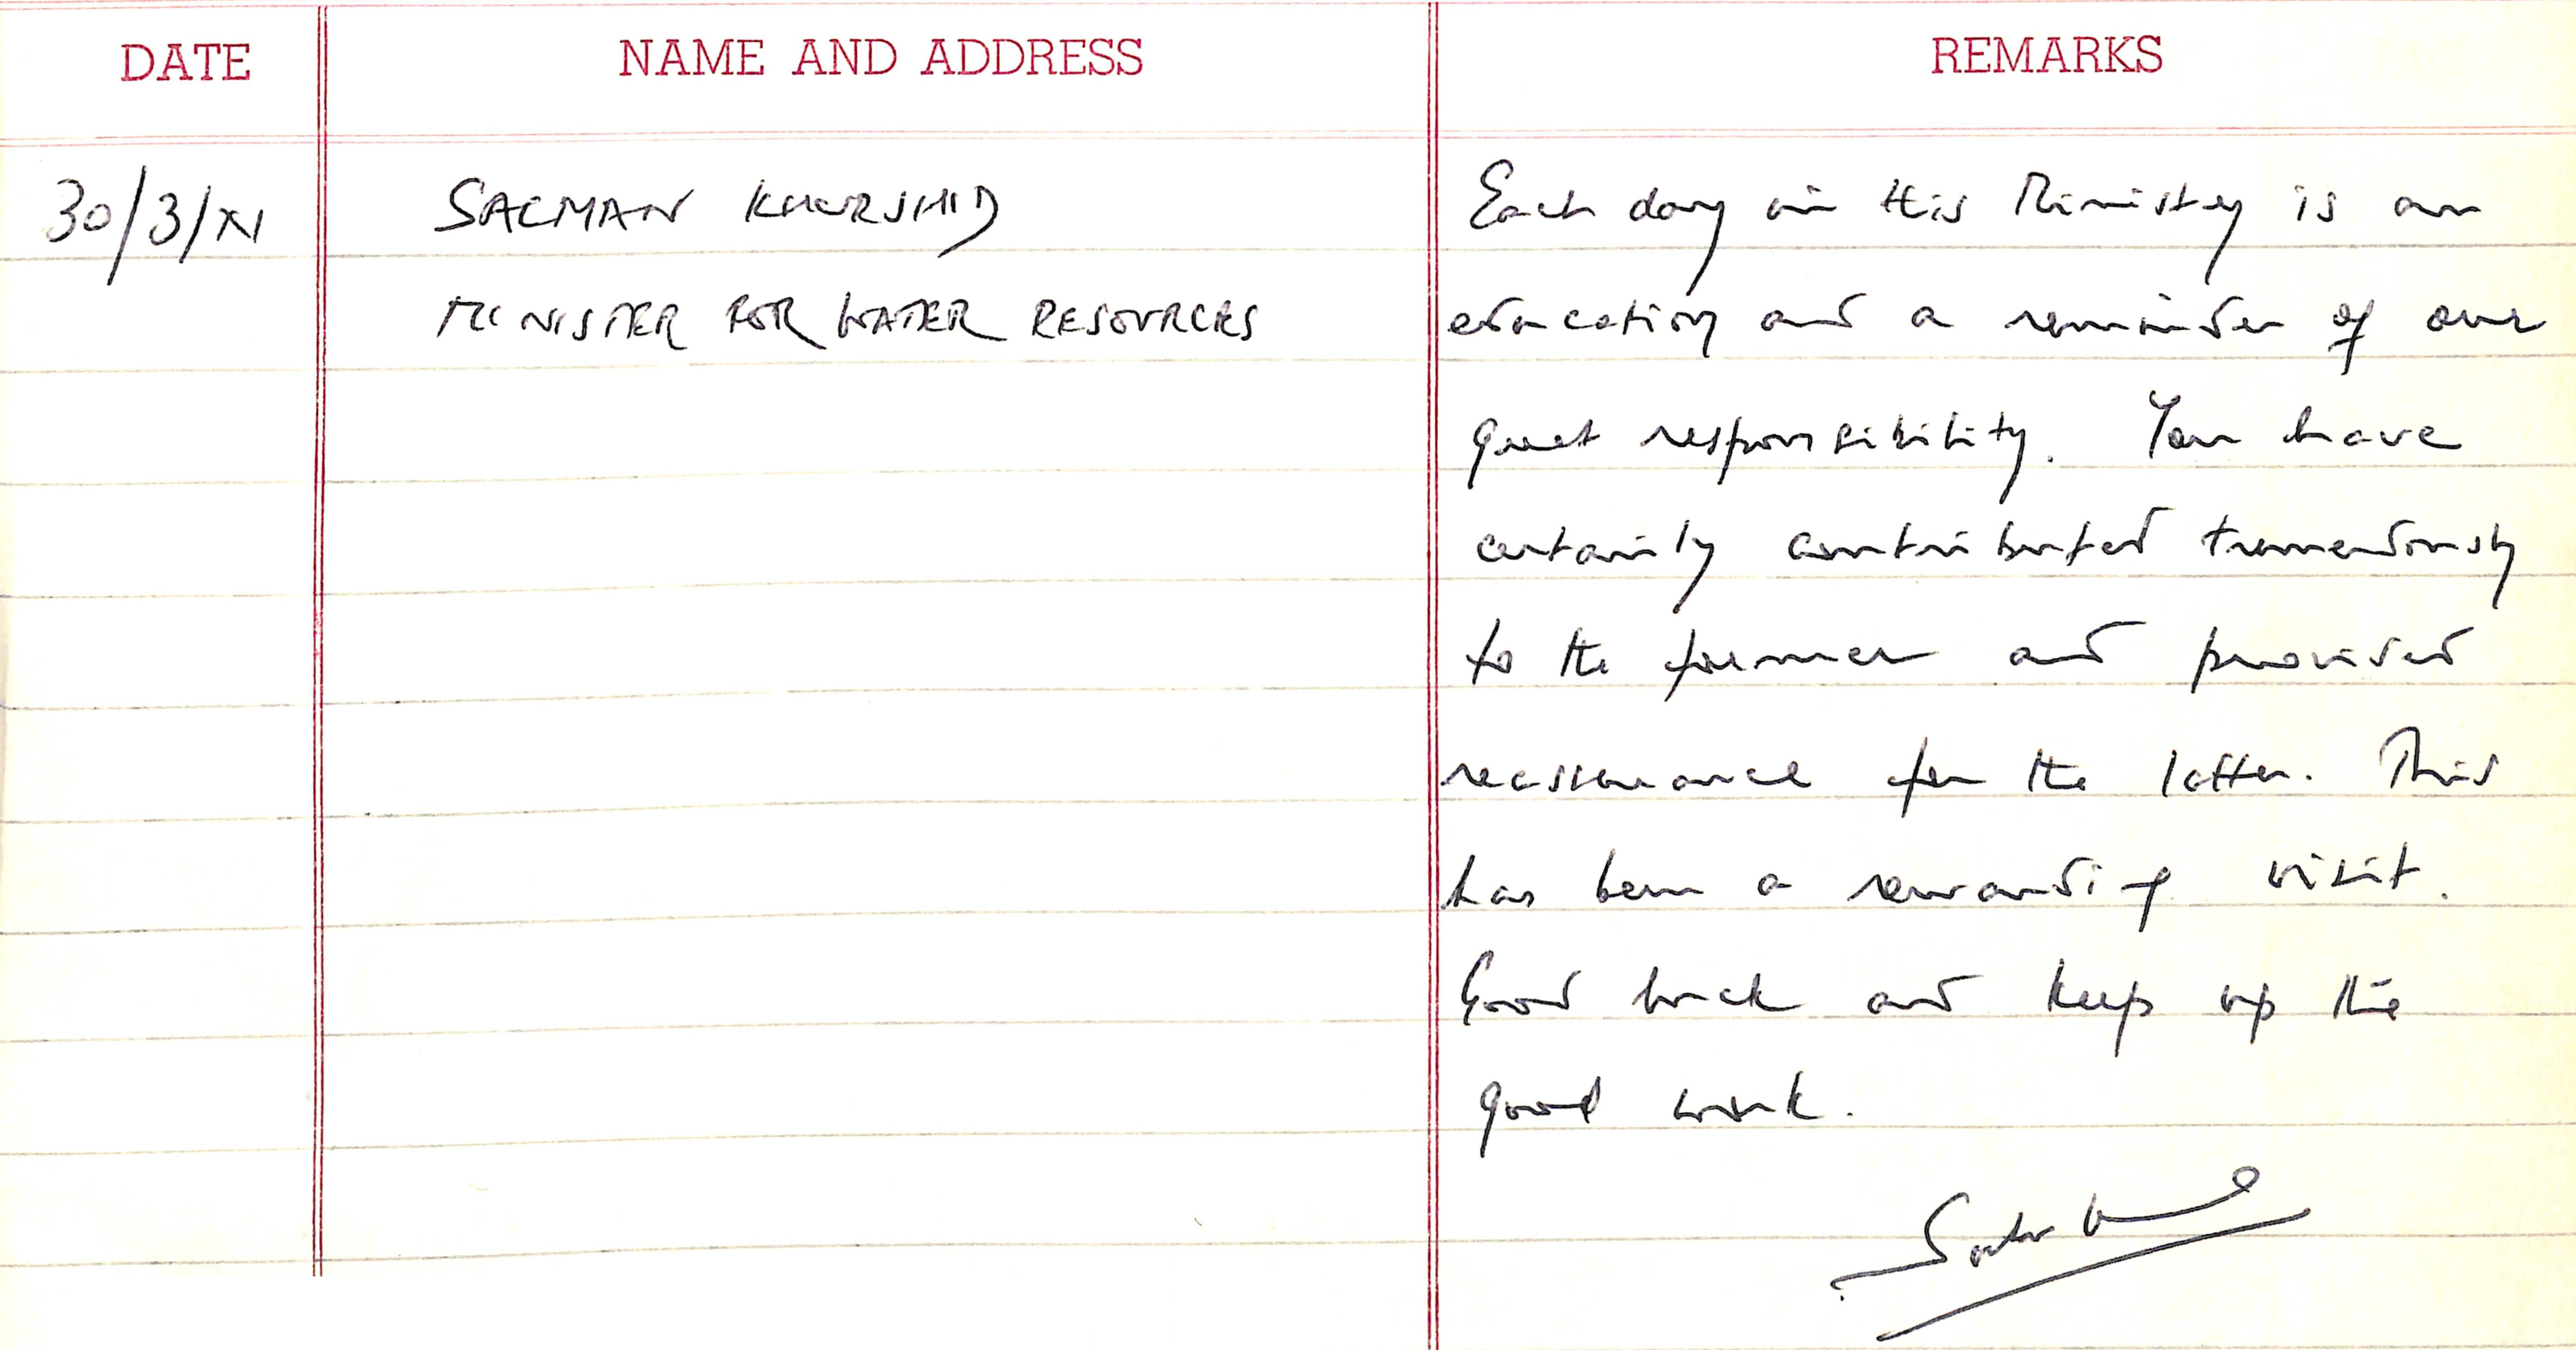 DATE NAME AND ADDRESS REMARKS
30/3/XI SALMAN KHURSHID Each day in this Ministry is an
MINISTER FOR WATER RESOURCES education and a reminder of our
great responsibility. You have
certainly contributed tremendously
to the former and provided
reassurance for the latter. This
has been a rewarding visit.
Good luck and keep up the
good work.